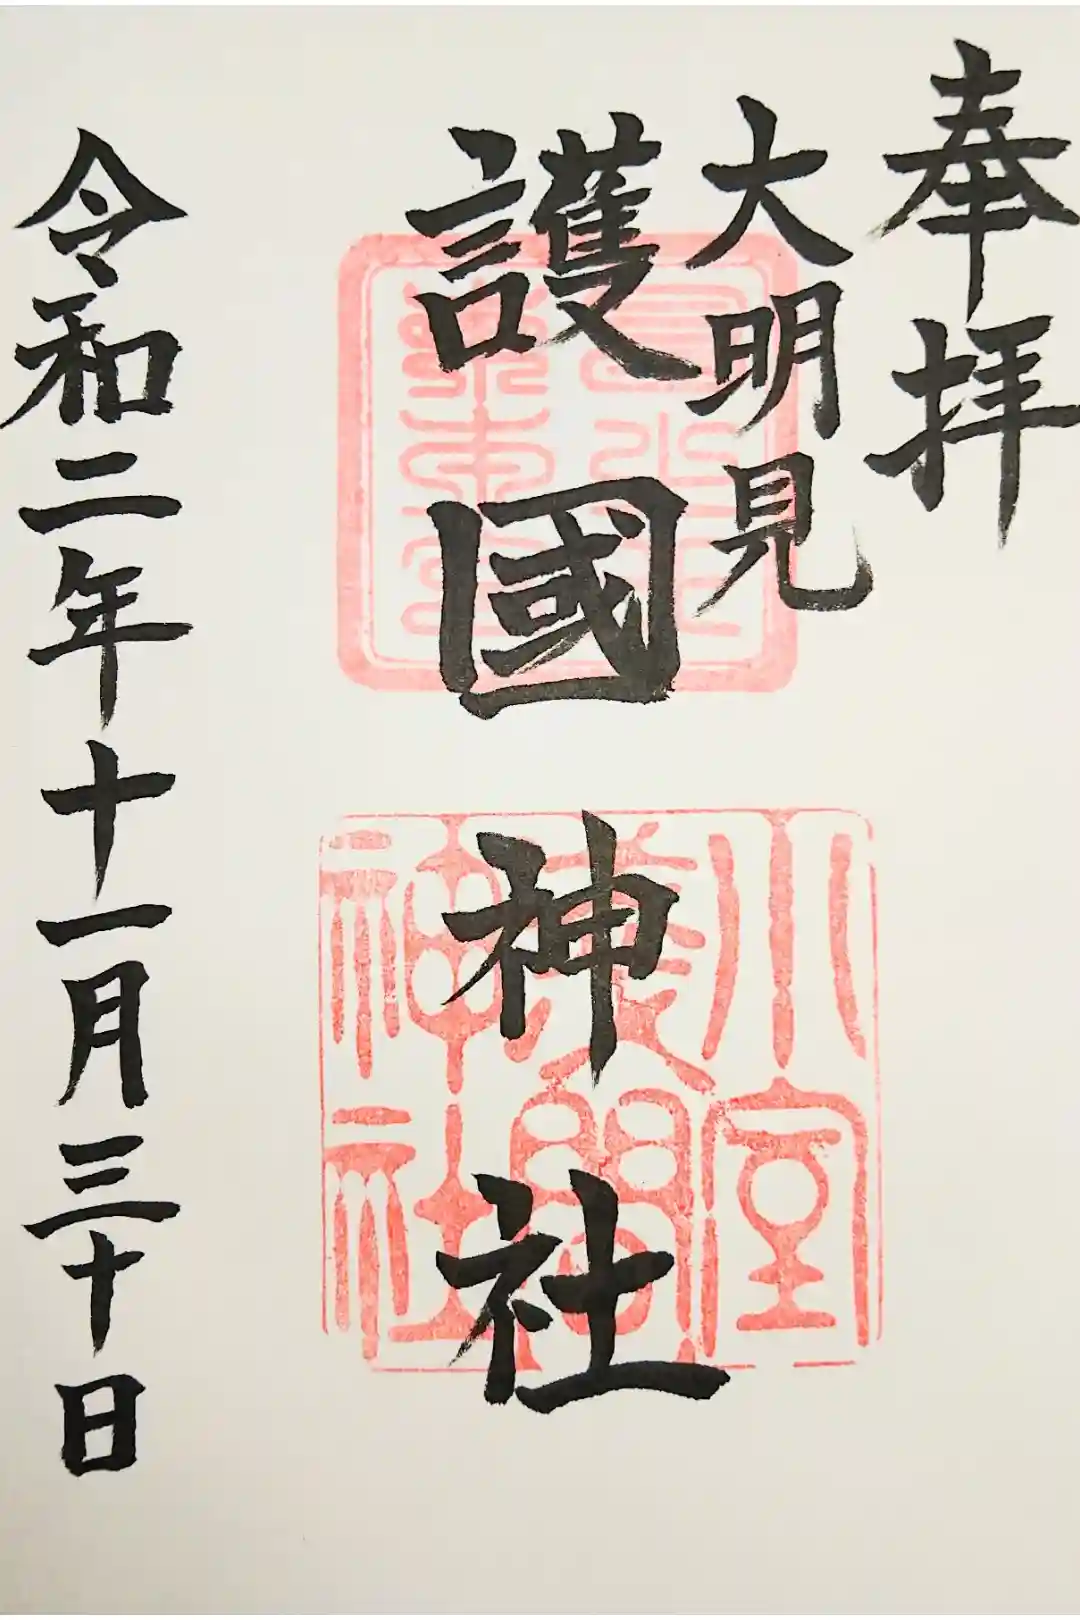 奉拝
大明見
護國神社
小室
浅間
神社
令和二年十一月三十日